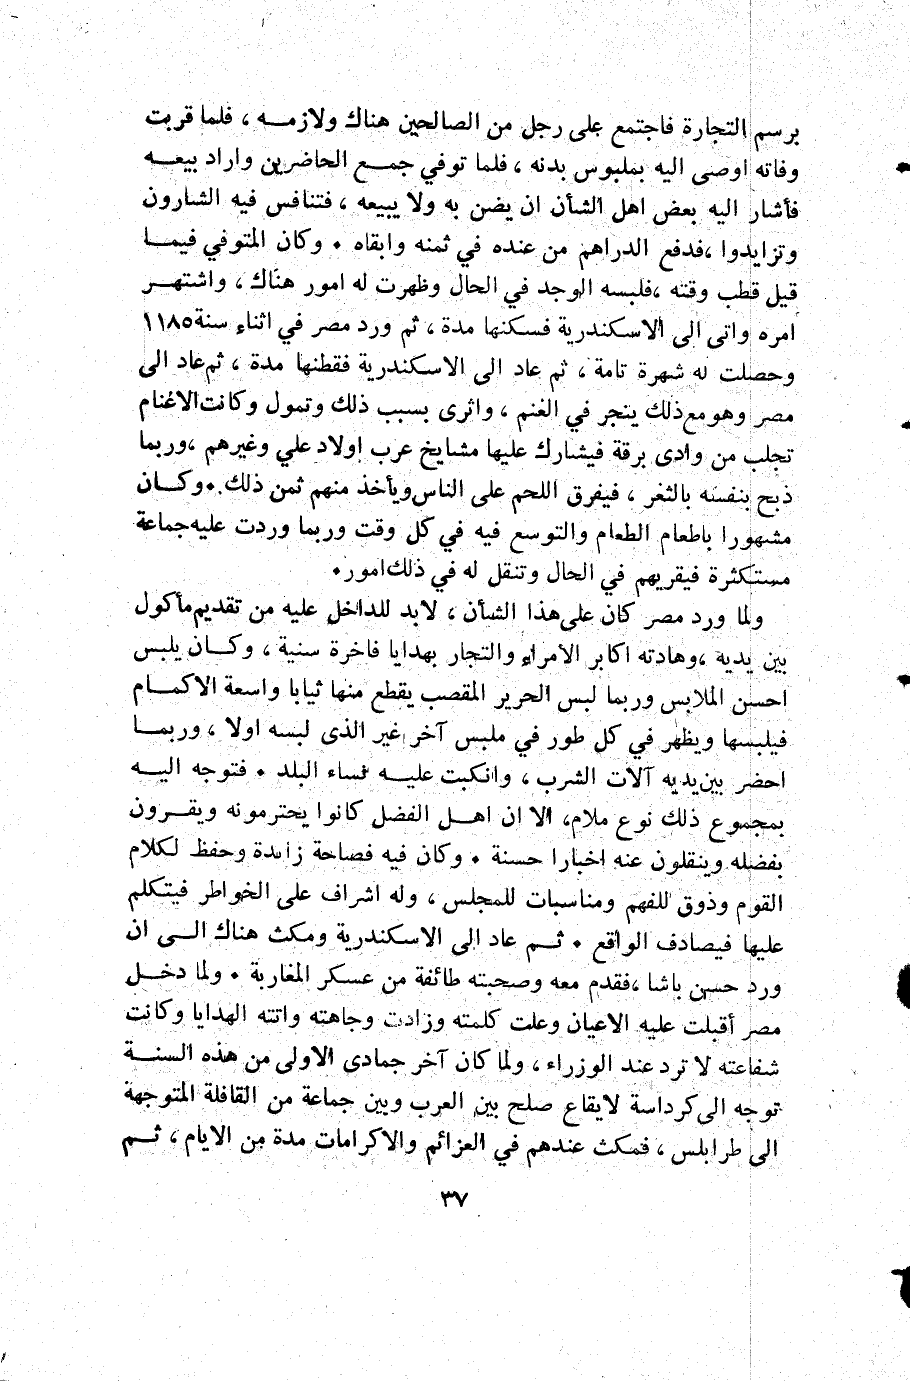 برسم التجارة فاجتمع على رجل من الصالحين هناك ولازمـه ، فلما قربت
وفاته اوصى اليه بملبوس بدنه ، فلما توفي جمـع الحاضرين واراد بيعـه
فأشار اليه بعض اهل الشأن ان يضن به ولا يبيعه ، فتنافس فيه الشارون
وتزايدوا ،فدفع الدراهم من عنده في ثمنه وابقاه ٠ وكان المتوفي فيمـا
قيل قطب وقته ،فلبسه الوجد في الحال وظهرت له امور هناك ، واشتهـر
امره واتى الى الاسكندرية فسكنها مدة ، ثم ورد مصر في اثناء سنة ١١٨٥
وحصلت له شهرة تامة ، ثم عاد الى الاسكندرية فقطنها مدة ، ثم عاد الى
مصر وهو مع ذلك يتجر في الغنم ، واثرى بسبب ذلك وتمول وكانت الاغنام
تجلب من وادى برقة فيشارك عليها مشايخ عرب اولاد علي وغيرهم ،وربما
ذبح بنفسه بالثغر ، فيفرق اللحم على الناس ويأخذ منهم ثمن ذلك ٠ وكـان
مشهورا باطعام الطعام والتوسع فيه في كل وقت وربما وردت عليه جماعة
مستكثرة فيقريهم في الحال وتنقل له في ذلك امور ٠
ولما ورد مصر كان على هذا الشأن ، لابد للداخل عليه من تقديم مأكول
بين يديه ،وهادته اكابر الامراء والتجار بهدايا فاخرة سنية ، وكـان يلبس
احسن الملابس وربما لبس الحرير المقصب يقطع منها ثيابا واسعة الاكمـام
فيلبسها ويظهر في كل طور في ملبس آخر غير الذى لبسه اولا ، وربمـا
احضر بين يديه آلات الشرب ، وانكبت عليـه نساء البلد ٠ فتوجه اليـه
بمجموع ذلك نوع ملام، الا ان اهـل الفضل كانوا يحترمونه ويقـرون
بفضله وينقلون عنه اخبارا حسنة ٠ وكان فيه فصاحة زائدة وحفظ لكلام
القوم وذوق للفهم ومناسبات للمجلس ، وله اشراف على الخواطر فيتكلم
عليها فيصادف الواقع ٠ ثـم عاد الى الاسكندرية ومكث هناك الـى ان
ورد حسن باشا ،فقدم معه وصحبته طائفة من عسكر المغاربة ٠ ولما دخـل
مصر أقبلت عليه الاعيان وعلت كلمته وزادت وجاهته واتته الهدايا وكانت
شفاعته لا ترد عند الوزراء ، ولما كان آخر جمادى الاولى من هذه السنـة
توجه الى كرداسة لايقاع صلح بين العرب وبين جماعة من القافلة المتوجهة
الى طرابلس ، فمكث عندهم في العزائم والاكرامات مدة من الايام ، ثـم
٣٧